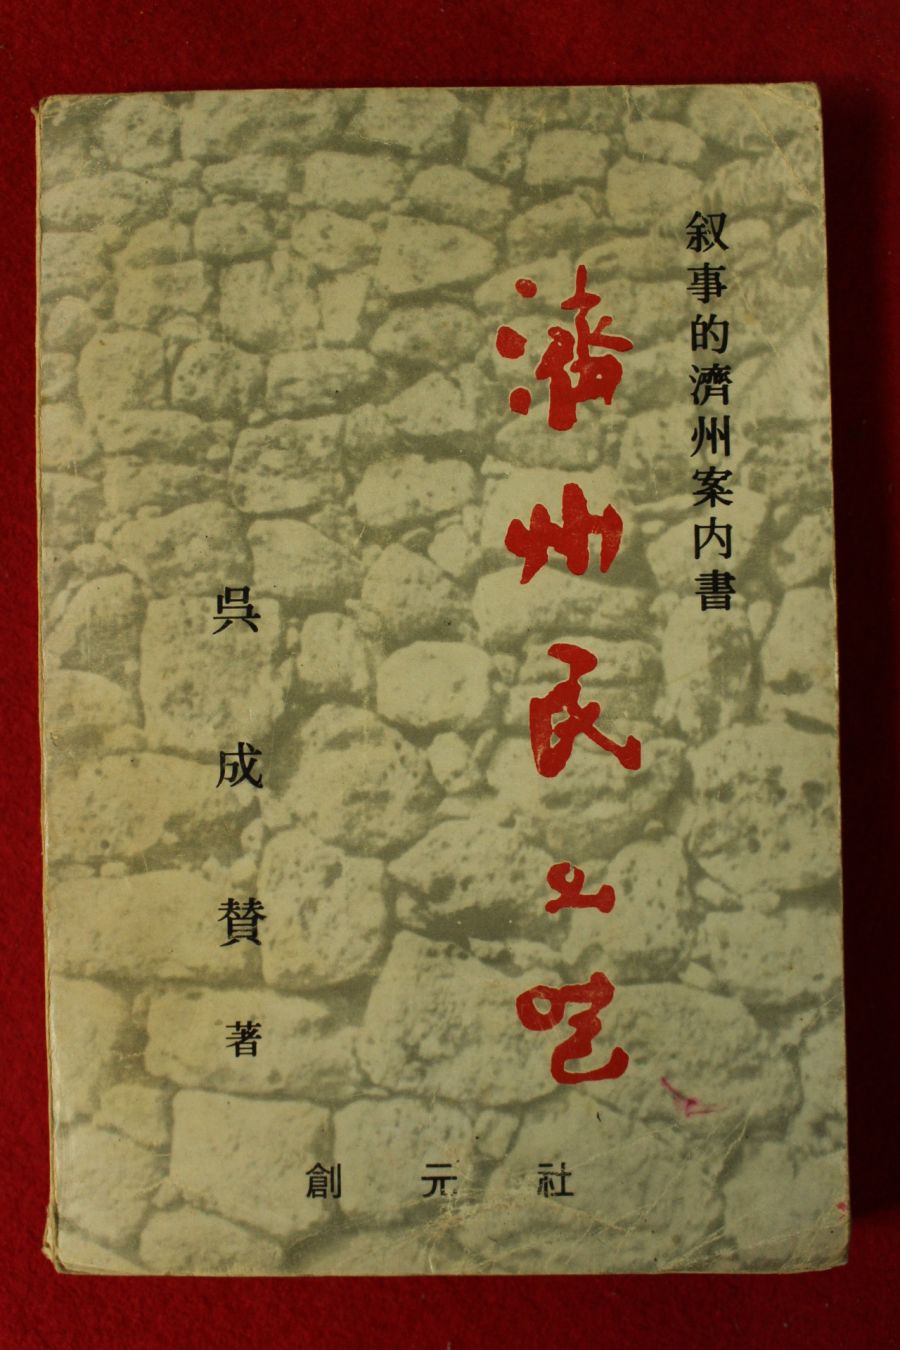 叙事的濟州案内書
濟州民의얼
吳成賛著
創元社